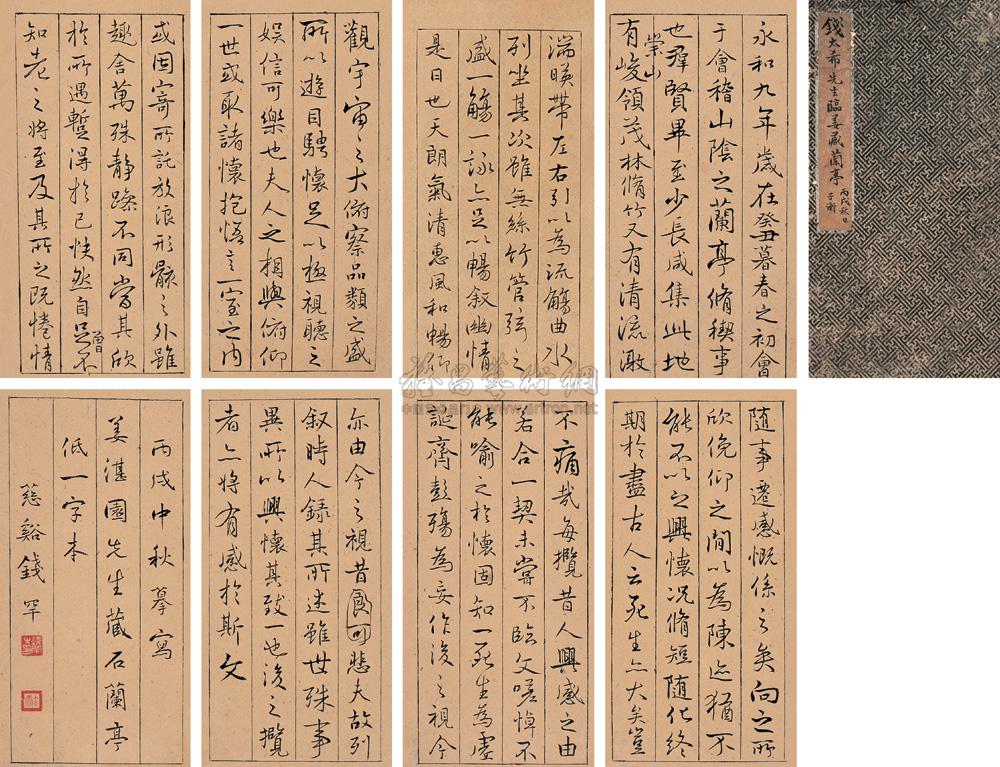 錢太希先生臨姜藏蘭亭
丙戌秋日
永和九年歲在癸丑暮春之初會
于會稽山陰之蘭亭脩稧事
也羣賢畢至少長咸集此地
崇山
有峻領茂林脩竹又有清流激
湍暎帶左右引以為流觴曲水
列坐其次雖無絲竹管弦之
盛一觴一詠亦足以暢叙幽情
是日也天朗氣清惠風和暢仰
觀宇宙之大俯察品類之盛
所以遊目騁懷足以極視聽之
娛信可樂也夫人之相與俯仰
一世或取諸懷抱悟言一室之內
或因寄所託放浪形骸之外雖
趣舍萬殊静躁不同當其欣
於所遇蹔得於己怏然自足不
知老之將至及其所之既惓情
隨事遷感慨係之矣向之所
欣俛仰之閒以為陳迹猶不
能不以之興懷况脩短隨化終
期於盡古人云死生亦大矣豈
不痛哉每攬昔人興感之由
若合一契未甞不臨文嗟悼不
能喻之於懷固知一死生為虛
誕齊彭殤為妄作後之視今
亦由今之視昔悲夫故列
叙時人錄其所述雖世殊事
異所以興懷其致一也後之攬
者亦將有感於斯文
丙戌中秋摹寫
姜湛園先生藏石蘭亭
低一字本
慈谿錢罕